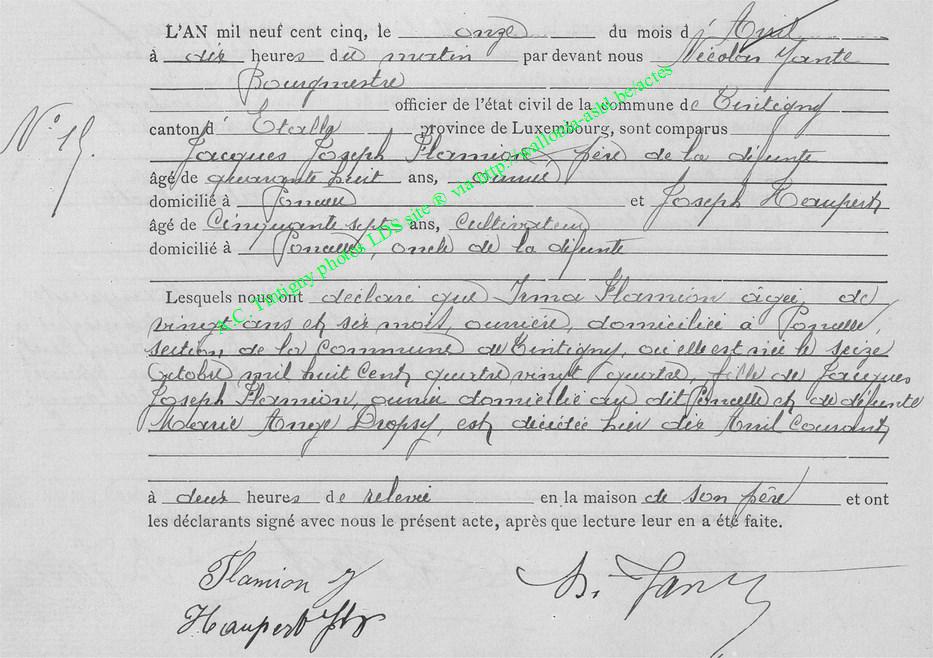 L'AN mil neuf cent cinq, le onze du mois d'Avril
à dix heures du matin par devant nous Nicolas
Bourgmestre
officier de l'état civil de la commune de Tintigny
N° 15.
canton d'Etalle province de Luxembourg, sont comparus
Jacques Joseph Flamion, père de la défunte
âgé de quarante huit ans, ouvrier
domicilié à Poncelle et Joseph Haupert
âgé de Cinquante sept ans, Cultivateur
domicilié à Poncelle, oncle de la défunte
Lesquels nous ont déclaré que Irma Flamion âgée de
vingt ans et six mois, ouvrière, domiciliée à Poncelle,
section de la Commune de Tintigny, où elle est née le seize
Octobre mil huit cent quatre vingt quatre, fille de Jacques
Joseph Flamion, ouvrier domicilié au dit Poncelle et de défunte
Marie Ange Dropsy, est décédée hier dix Avril courant
à deux heures de relevée en la maison de son père et ont
les déclarants signé avec nous le présent acte, après que lecture leur en a été faite.
Flamion J
Haupert Jh
A.C. Tintigny photos LDS site ® via http://wallonia-asbl.be/actes